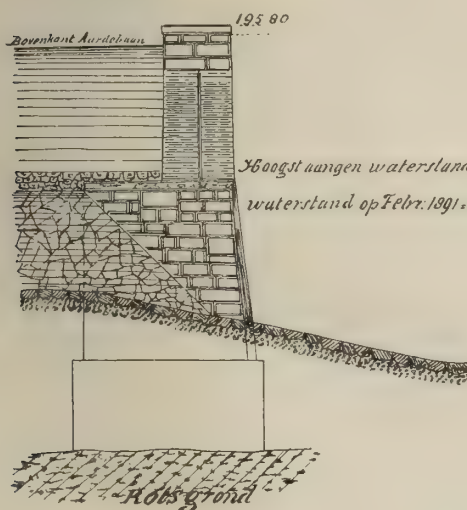 195 80
Bovenkant Aardebaan
Hoogst aangen waterstand
waterstand op Febr. 1891 =
Rotsgrond